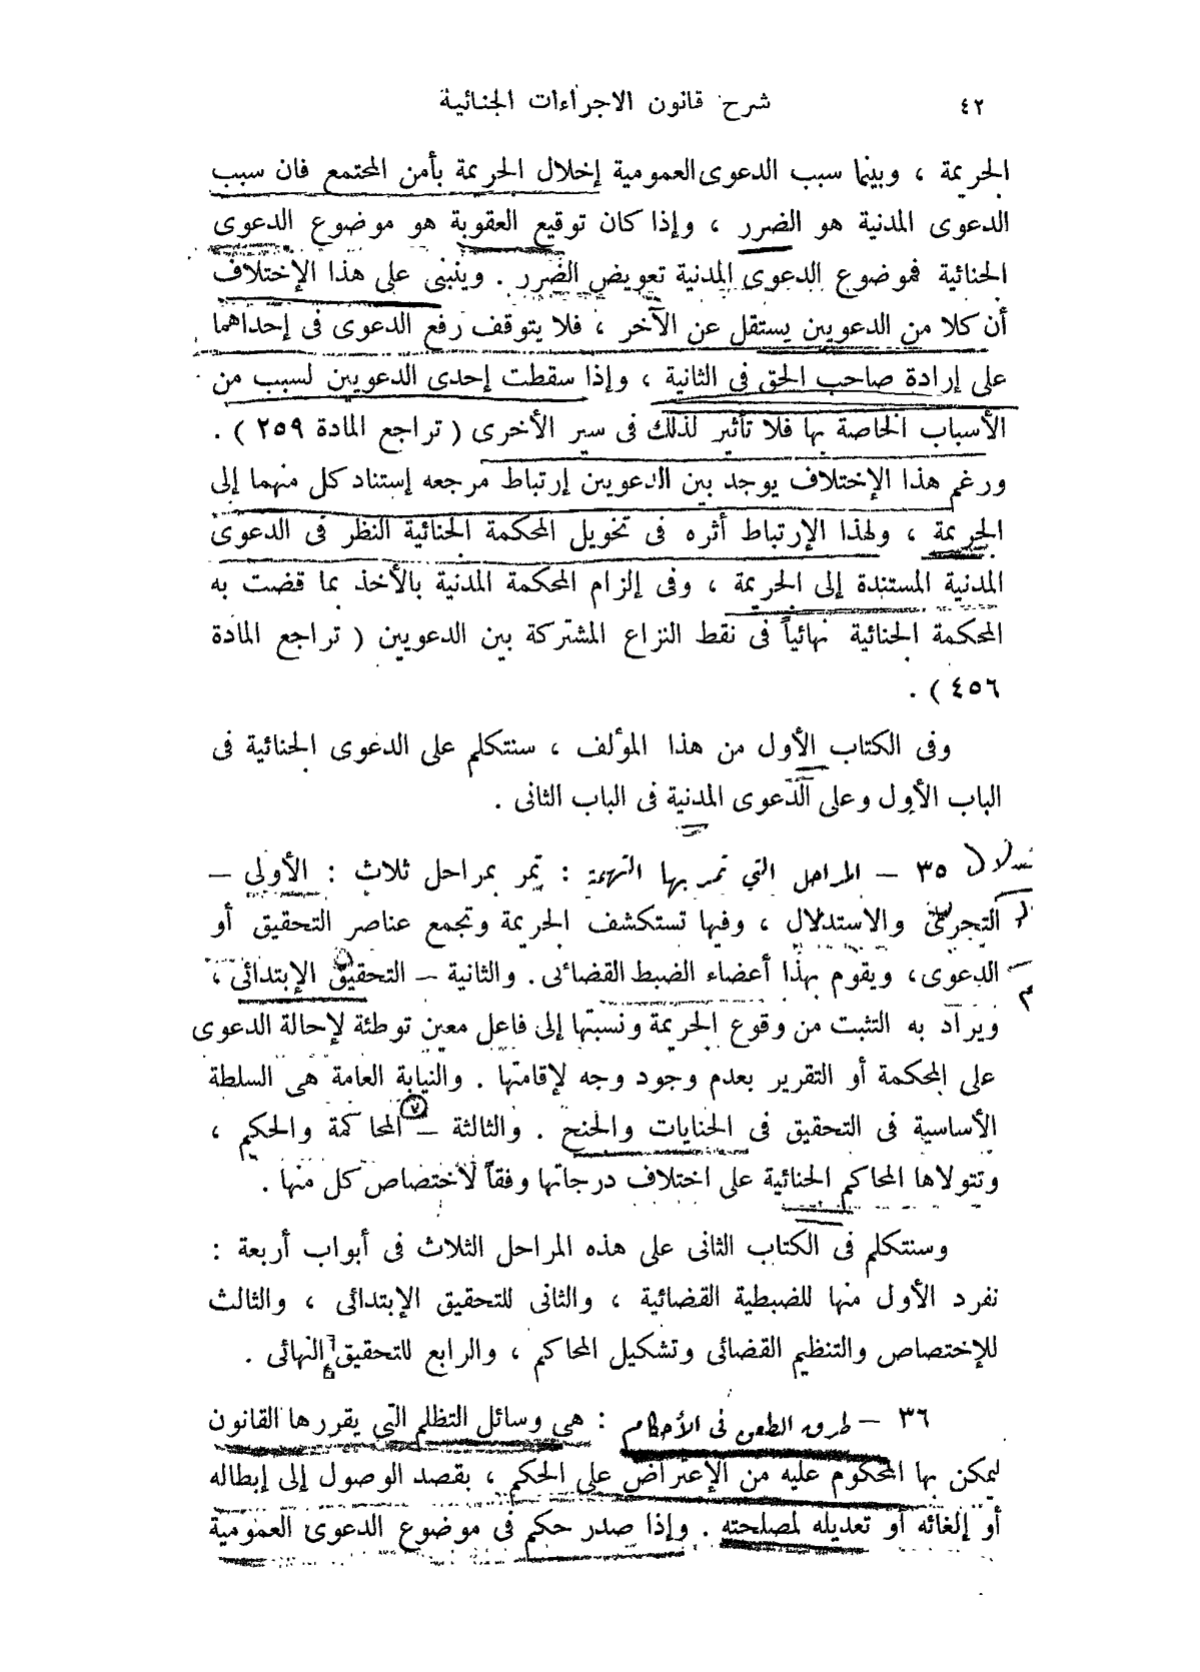 ٤٢
شرح قانون الاجراءات الجنائية
الجريمة ، وبينما سبب الدعوى العمومية إخلال الجريمة بأمن المجتمع فان سبب
الدعوى المدنية هو الضرر ، وإذا كان توقيع العقوبة هو موضوع الدعوى
الجنائية فموضوع الدعوى المدنية تعويض الضرر . وينبنى على هذا الإختلاف
أن كلا من الدعويين يستقل عن الآخر ، فلا يتوقف رفع الدعوى فى إحداهما
على إرادة صاحب الحق فى الثانية ، وإذا سقطت إحدى الدعويين لسبب من
الأسباب الخاصة بها فلا تأثير لذلك فى سير الأخرى ( تراجع المادة ٢٥٩ ) .
ورغم هذا الإختلاف يوجد بين الدعويين إرتباط مرجعه إستناد كل منهما إلى
الجريمة ، ولهذا الإرتباط أثره فى تخويل المحكمة الجنائية النظر فى الدعوى
المدنية المستندة إلى الجريمة ، وفى إلزام المحكمة المدنية بالأخذ بما قضت به
المحكمة الجنائية نهائياً فى نقط النزاع المشتركة بين الدعويين ( تراجع المادة
٤٥٦ ) .
وفى الكتاب الأول من هذا المؤلف ، سنتكلم على الدعوى الجنائية فى
الباب الأول وعلى الدعوى المدنية فى الباب الثانى .
٣٥ – المراحل التي تمر بها التهمة : تمر بمراحل ثلاث : الأولى –
التحرى والاستدلال ، وفيها تستكشف الجريمة وتجمع عناصر التحقيق أو
الدعوى، ويقوم بهذا أعضاء الضبط القضائى . والثانية – التحقيق الإبتدائى ،
ويراد به التثبت من وقوع الجريمة ونسبتها إلى فاعل معين توطئة لإحالة الدعوى
على المحكمة أو التقرير بعدم وجود وجه لإقامتها . والنيابة العامة هى السلطة
الأساسية فى التحقيق فى الجنايات والجنح . والثالثة – المحاكمة والحكم ،
وتتولاها المحاكم الجنائية على اختلاف درجاتها وفقاً لاختصاص كل منها .
وسنتكلم فى الكتاب الثانى على هذه المراحل الثلاث فى أبواب أربعة :
نفرد الأول منها للضبطية القضائية ، والثانى للتحقيق الإبتدائى ، والثالث
للإختصاص والتنظيم القضائى وتشكيل المحاكم ، والرابع للتحقيق النهائى .
٣٦ – طرق الطعن فى الأحكام : هى وسائل التظلم التى يقررها القانون
ليمكن بها المحكوم عليه من الإعتراض على الحكم ، بقصد الوصول إلى إبطاله
أو إلغائه أو تعديله لمصلحته . وإذا صدر حكم فى موضوع الدعوى العمومية